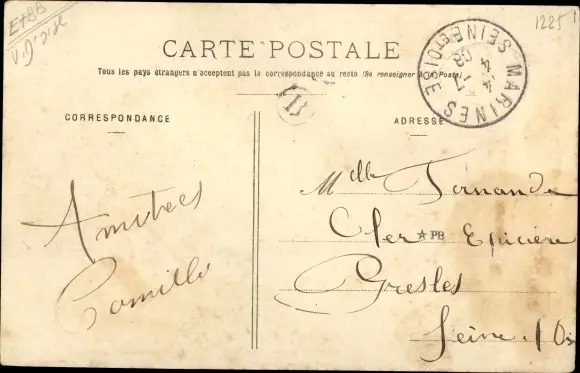 E+BB
V. D'oise
1225
CARTE POSTALE
Tous les pays étrangers n'acceptent pas la correspondance au recto (Se renseigner à la Poste)
MARINES
SEINE-ET-OISE
14 -7
4
08
B
CORRESPONDANCE
ADRESSE
Amitiés
Camille
Melle Fernande
Cler ☆PB Epicière
Presles
Seine / Oi